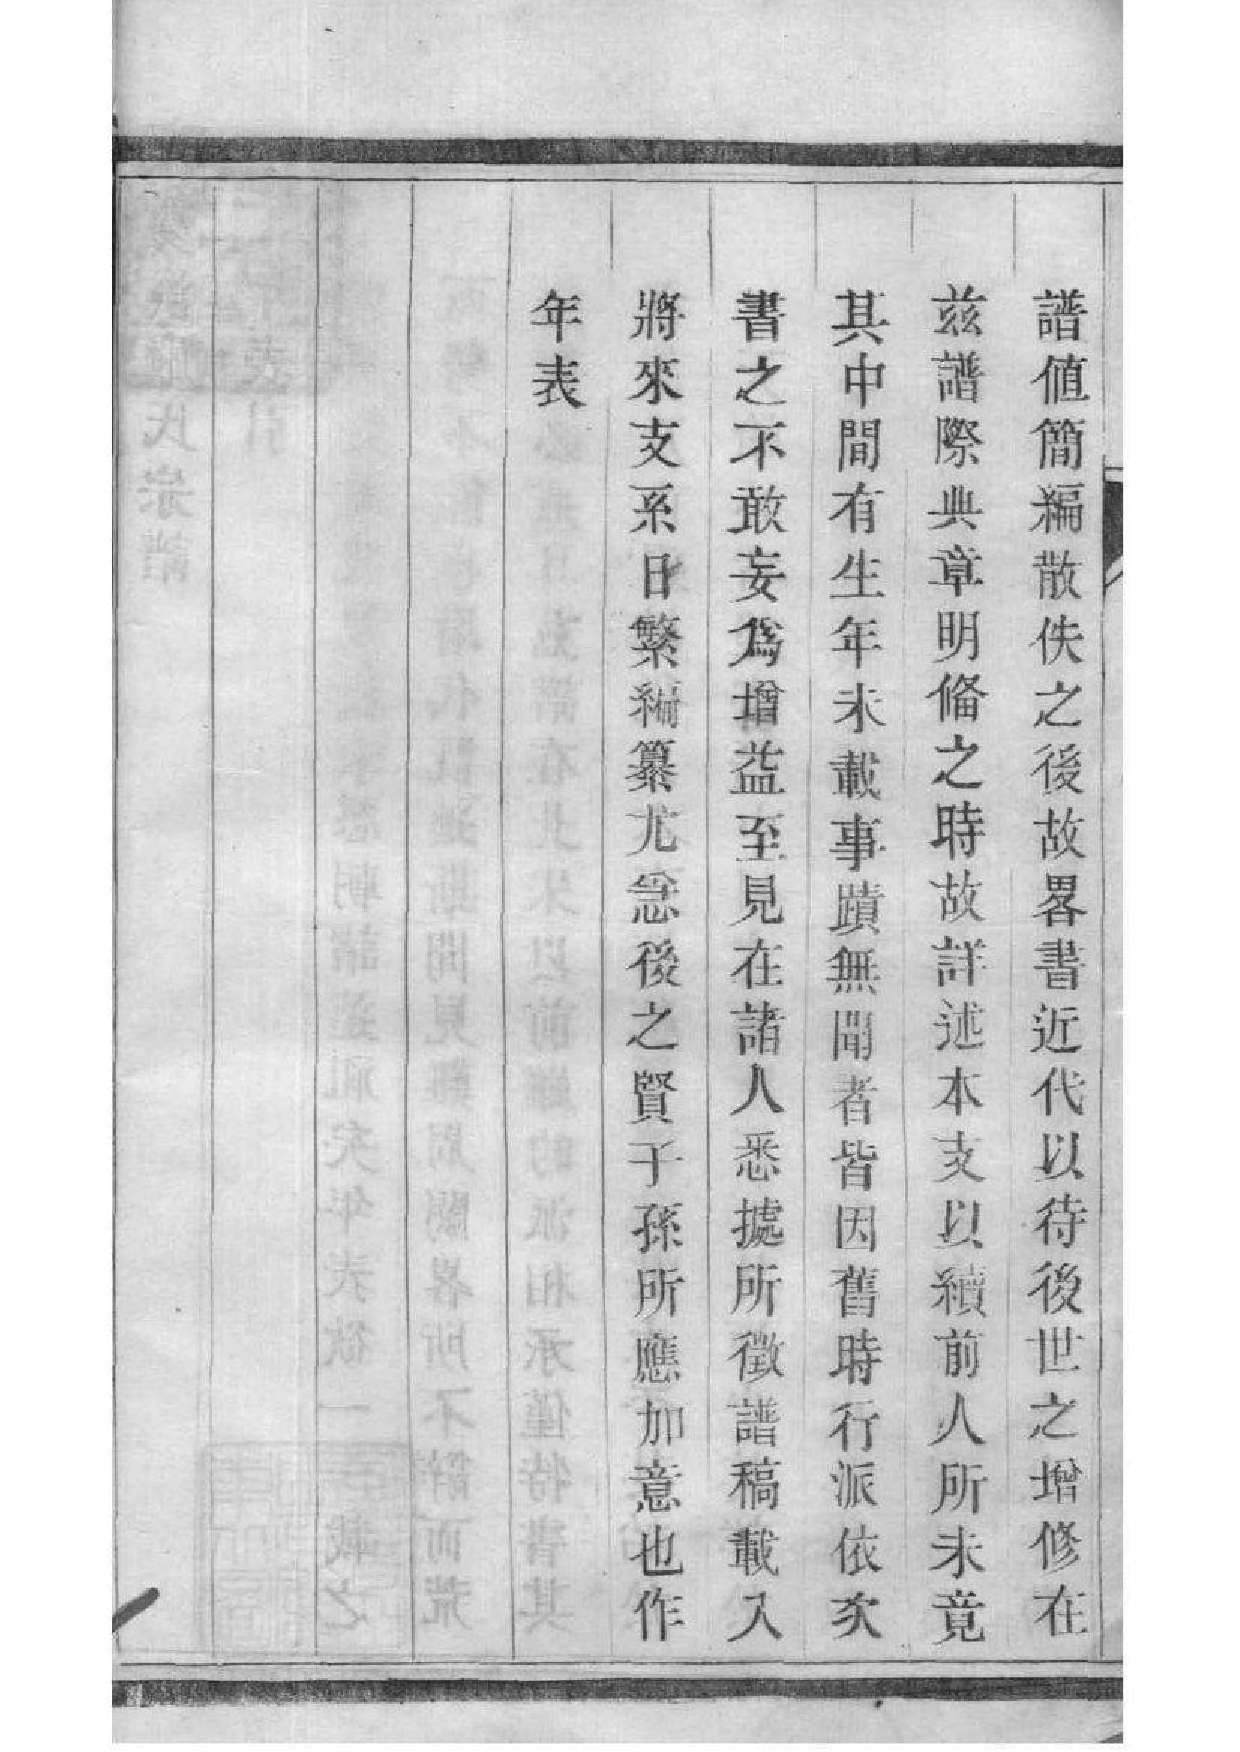 譜值簡編散佚之後故畧書近代以待後世之增修在
兹譜際典章明偹之時故詳述本支以續前人所未竟
其中間有生年未載事蹟無聞者皆因舊時行派依次
書之不敢妄為增益至見在諸人悉據所徵譜稿載入
將來支系日繁編纂尤念後之賢子孫所應加意也作
年表